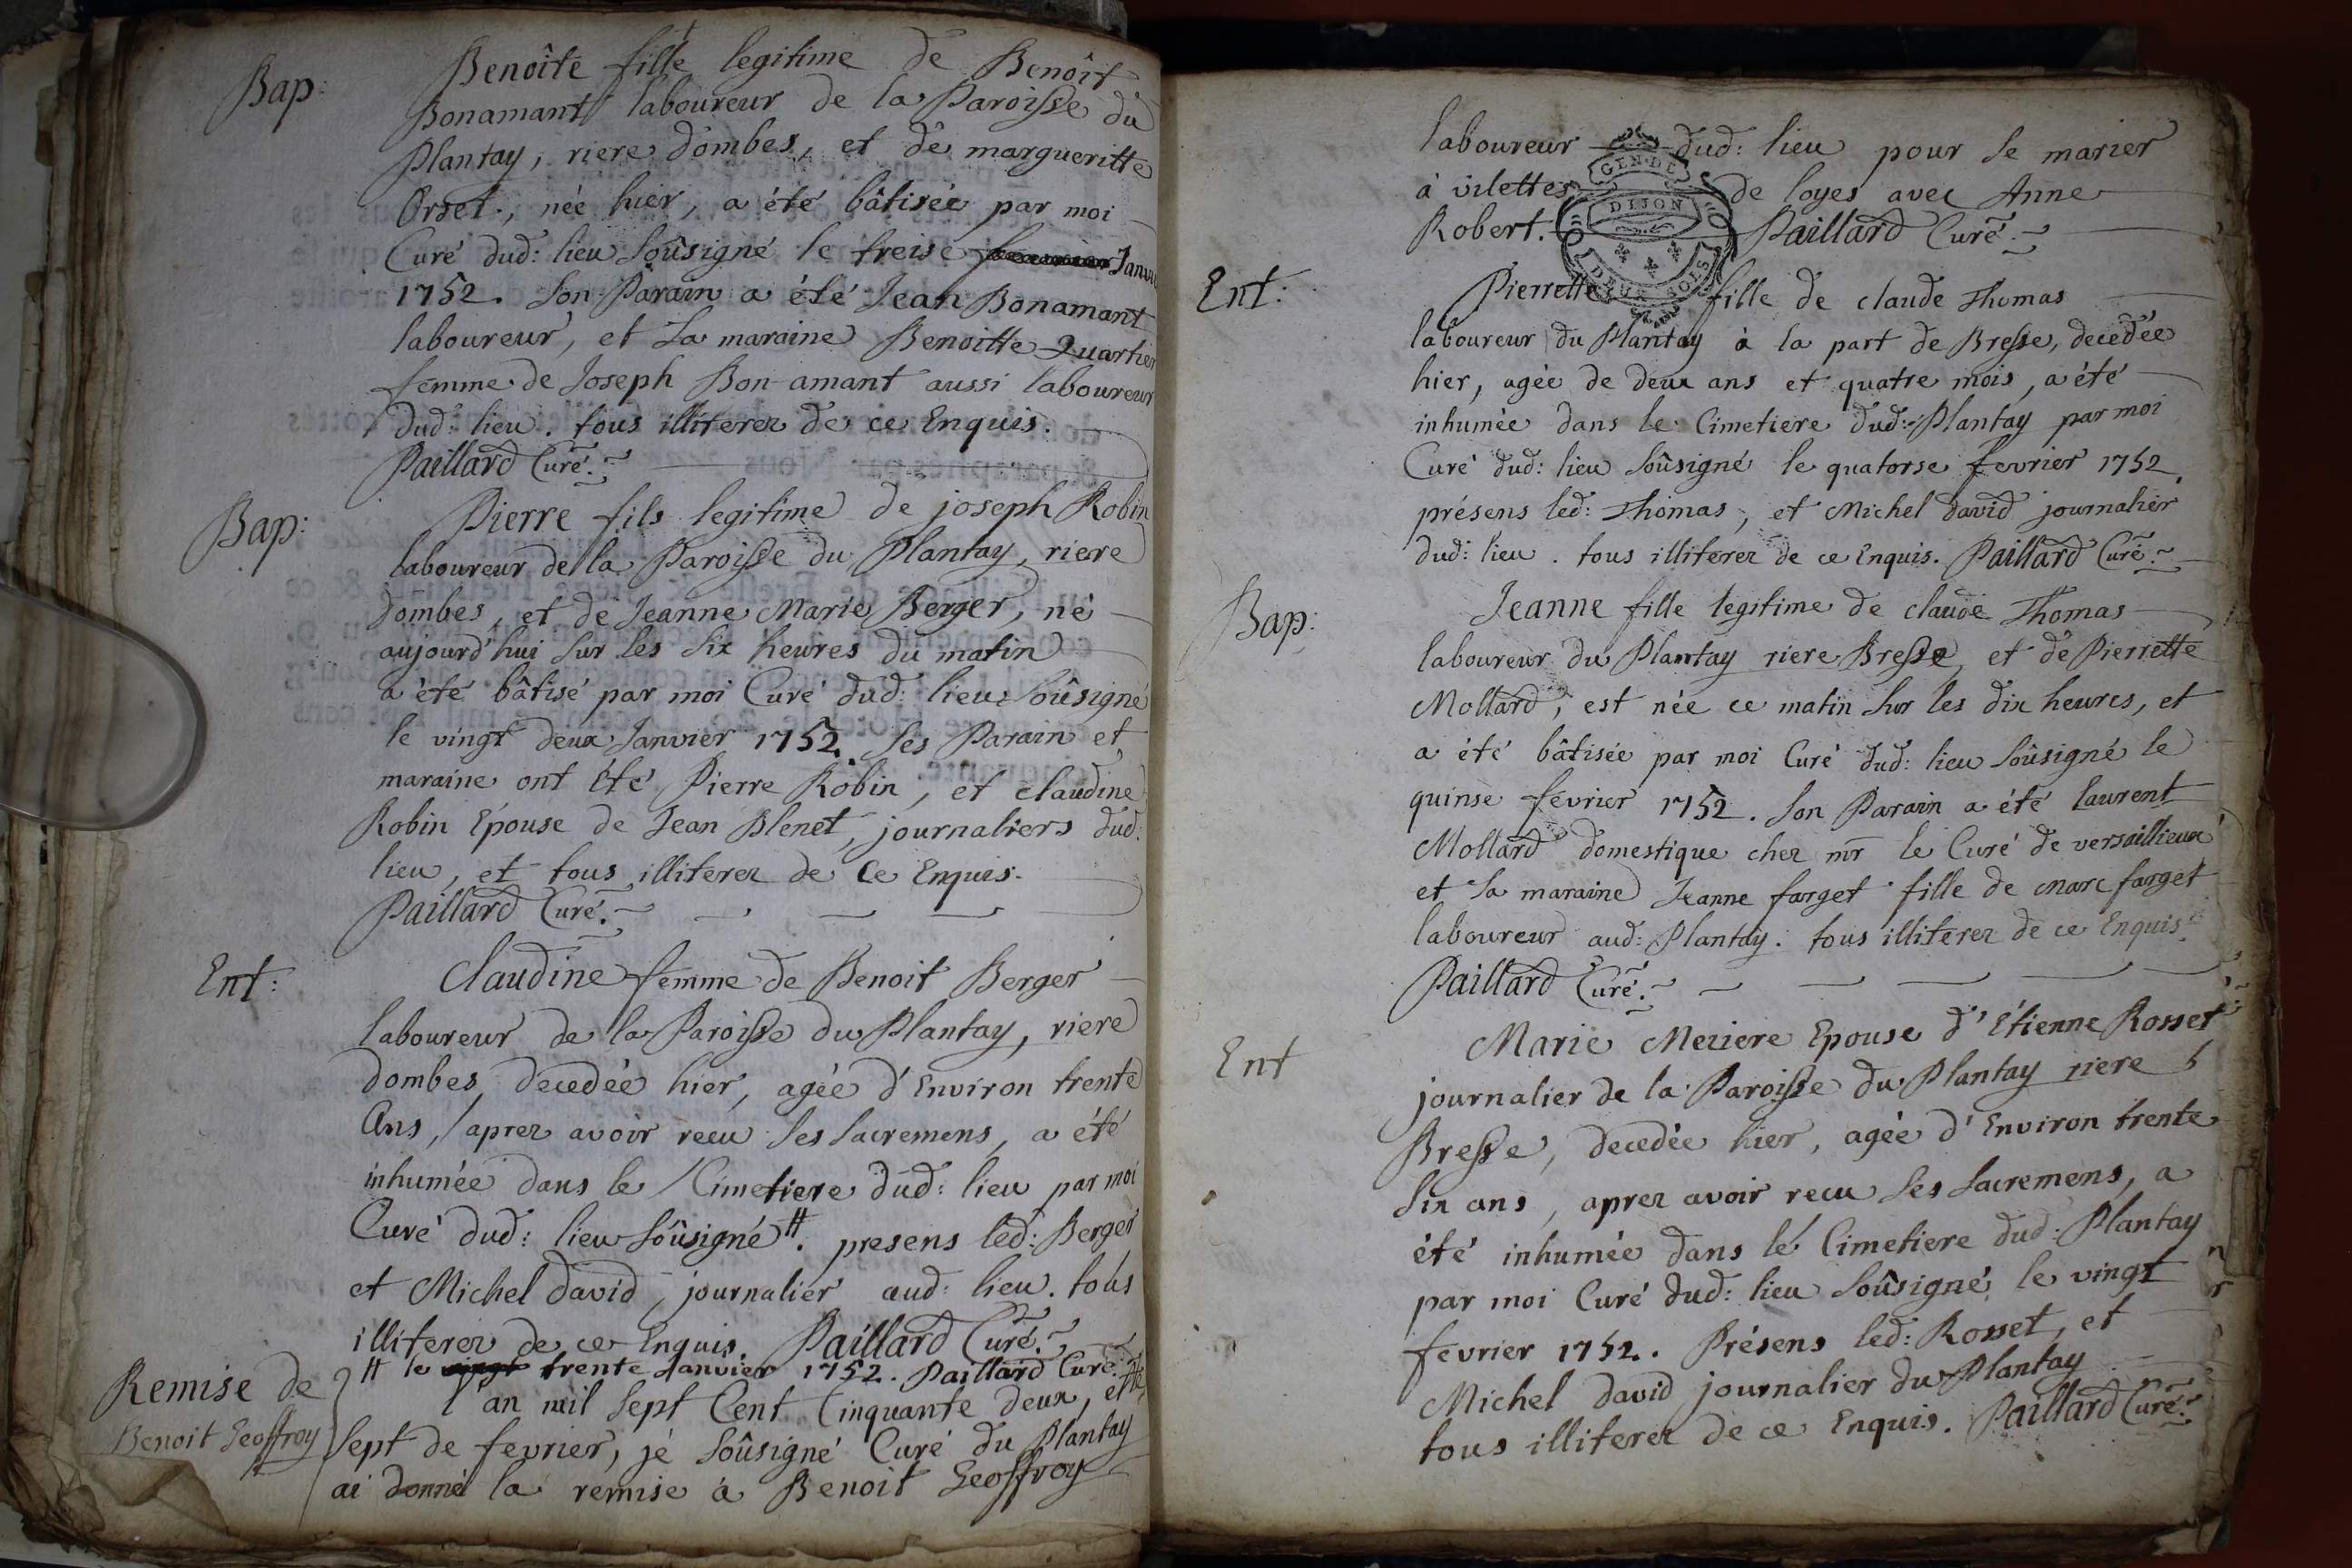 Bap: Benoîte fille legitime de Benoît
Bonamant laboureur de la Paroisse du
Plantay, riere dombes, et de margueritte
Orset, née hier, a été bâtisée par moi
Curé dud: lieu soûsigné le treise Janvier
1752. Son Parain a été Jean Bonamant
laboureur, et sa maraine Benoitte Quartier
femme de Joseph Bon-amant aussi laboureur
dud: lieu. tous illiterez de ce Enquis.
Paillard Curé.
Bap: Pierre fils legitime de joseph Robin
laboureur de la Paroisse du Plantay, riere
dombes, et de Jeanne Marie Berger, né
aujourd'hui sur les six heures du matin
a été bâtisé par moi Curé dud: lieu soûsigné
le vingt deux Janvier 1752. Ses Parain et
maraine ont été Pierre Robin, et claudine
Robin Epouse de Jean Blenet, journaliers dud.
lieu, et tous illiterez de Ce Enquis.
Paillard Curé.
Ent: Claudine femme de Benoit Berger
laboureur de la Paroisse du Plantay, riere
dombes, decedée hier, agée d'Environ trente
Ans, aprez avoir recu ses sacremens, a été
inhumée dans le Cimetiere dud: lieu par moi
Curé dud: lieu soûsigné #. presens led: Berger
et Michel david, journalier aud: lieu. tous
illiterez de ce Enquis. Paillard Curé.
# le vingt trente Janvier 1752. Paillard Curé.
Remise de Benoit Geoffroy
l'an mil sept Cent Cinquante deux, et le
sept de fevrier, je soûsigné Curé du Plantay
ai donné la remise à Benoit Geoffroy
laboureur dud: lieu pour se marier
à vilettes de loyes avec Anne
Robert. Paillard Curé.
GEN. DE
DIJON
DEUX SOLS
Ent: Pierrette fille de claude Thomas
laboureur du Plantay à la part de Bresse, decedée
hier, agée de deux ans et quatre mois, a été
inhumée dans le Cimetiere dud: Plantay par moi
Curé dud: lieu soûsigné le quatorse fevrier 1752.
présens led: Thomas, et Michel david journalier
dud: lieu. tous illiterez de ce Enquis. Paillard Curé.
Bap: Jeanne fille legitime de claude Thomas
laboureur du Plantay riere Bresse, et de Pierrette
Mollard, est née ce matin sur les dix heures, et
a été bâtisée par moi Curé dud: lieu soûsigné le
quinse février 1752. Son Parain a été laurent
Mollard domestique chez mr le Curé de versaillieux
et sa maraine Jeanne farget fille de marc farget
laboureur aud: Plantay. tous illiterez de ce Enquis.
Paillard Curé.
Ent Marie Meziere Epouse d'Etienne Rosset
journalier de la Paroisse du Plantay riere
Bresse, decedée hier, agée d'Environ trente
six ans, aprez avoir recu ses sacremens, a
été inhumée dans le Cimetiere dud: Plantay
par moi Curé dud: lieu soûsigné le vingt
fevrier 1752. Présens led: Rosset, et
Michel david journalier du Plantay
tous illiterez de ce Enquis. Paillard Curé.